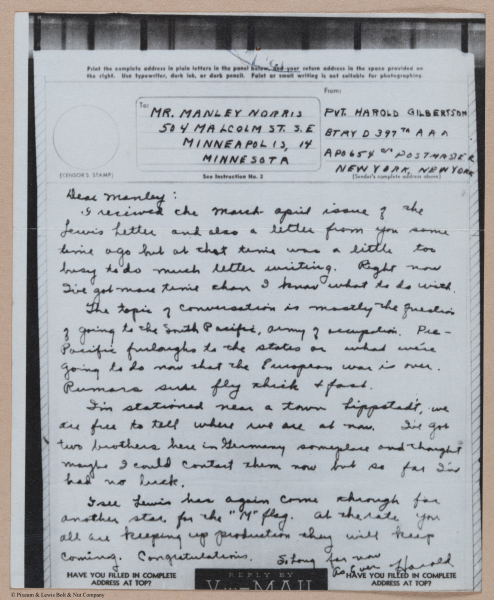 Print the complete address in plain letters in the panel below, and your return address in the space provided on
the right. Use typewriter, dark ink, or dark pencil. Faint or small writing is not suitable for photographing.
To:
MR. MANLEY NORRIS
504 MALCOLM ST. S.E
MINNEAPOLIS, 14
MINNESOTA
From:
PVT. HAROLD GILBERTSON
BTRY D 397TH A A A
APO 654 c/o POSTMASTER
NEW YORK, NEW YORK
(CENSOR'S STAMP)
See Instruction No. 2
(Sender's complete address above)
Dear Manley:
I received the March-April issue of the
Lewis Letter and also a letter from you some
time ago but at that time was a little too
busy to do much letter writing. Right now
I've got more time than I know what to do with.
The topic of conversation is mostly the question
of going to the South Pacific, army of occupation. Pre-
Pacific furloughs to the states or what we're
going to do now that the European war is over.
Rumors sure fly thick & fast.
I'm stationed near a town Lippstadt, we
are free to tell where we are at now. I've got
two brothers here in Germany someplace and thought
maybe I could contact them now but so far I've
had no luck.
I see Lewis has again come through for
another star for the "M" flag. At the rate you
all are keeping up production they will keep
coming. Congratulations.
So long for now
As Ever Harold
HAVE YOU FILLED IN COMPLETE
ADDRESS AT TOP?
REPLY BY
V···-MAIL
HAVE YOU FILLED IN COMPLETE
ADDRESS AT TOP?
© Pixzem & Lewis Bolt & Nut Company